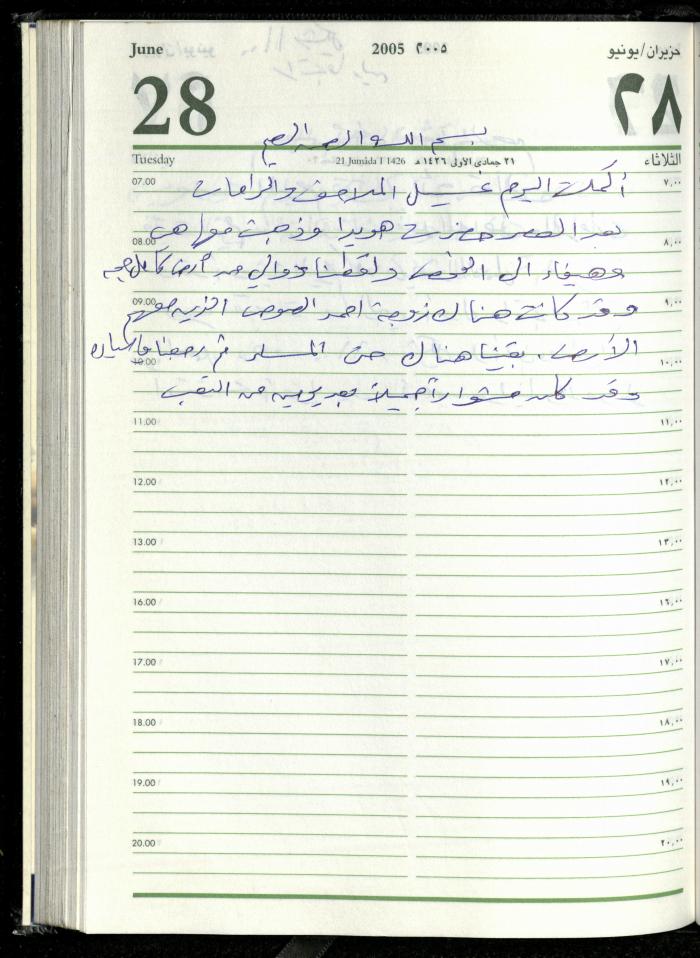 June 2005 ٢٠٠٥ حزيران/يونيو
28 ٢٨
بسم الله الرحمن الرحيم
Tuesday 21 Jumada I 1426 ٢١ جمادى الأولى ١٤٢٦ هـ الثلاثاء
07.00 ٧,٠٠
أكملت اليوم غسيل الملاحف والحرامات
بعد العصر حضرت هويدا وذهبت معها هي
08.00 ٨,٠٠
وهيفاء الى ولقطنا دوالي من أرض
09.00 ٩,٠٠
وقد كانت هناك زوجة احمد الذين معهم
الأرض. بقينا هناك حتى المساء ثم رجعنا
10.00 ١٠,٠٠
وقد كان مشواراً جميلاً بعد يومين من التعب
11.00 ١١,٠٠
12.00 ١٢,٠٠
13.00 ١٣,٠٠
16.00 ١٦,٠٠
17.00 ١٧,٠٠
18.00 ١٨,٠٠
19.00 ١٩,٠٠
20.00 ٢٠,٠٠